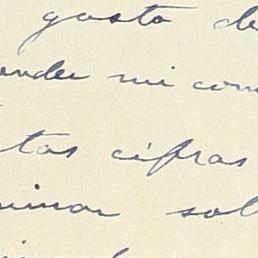 gusto de
ender mi com
tas cifras
minar sob